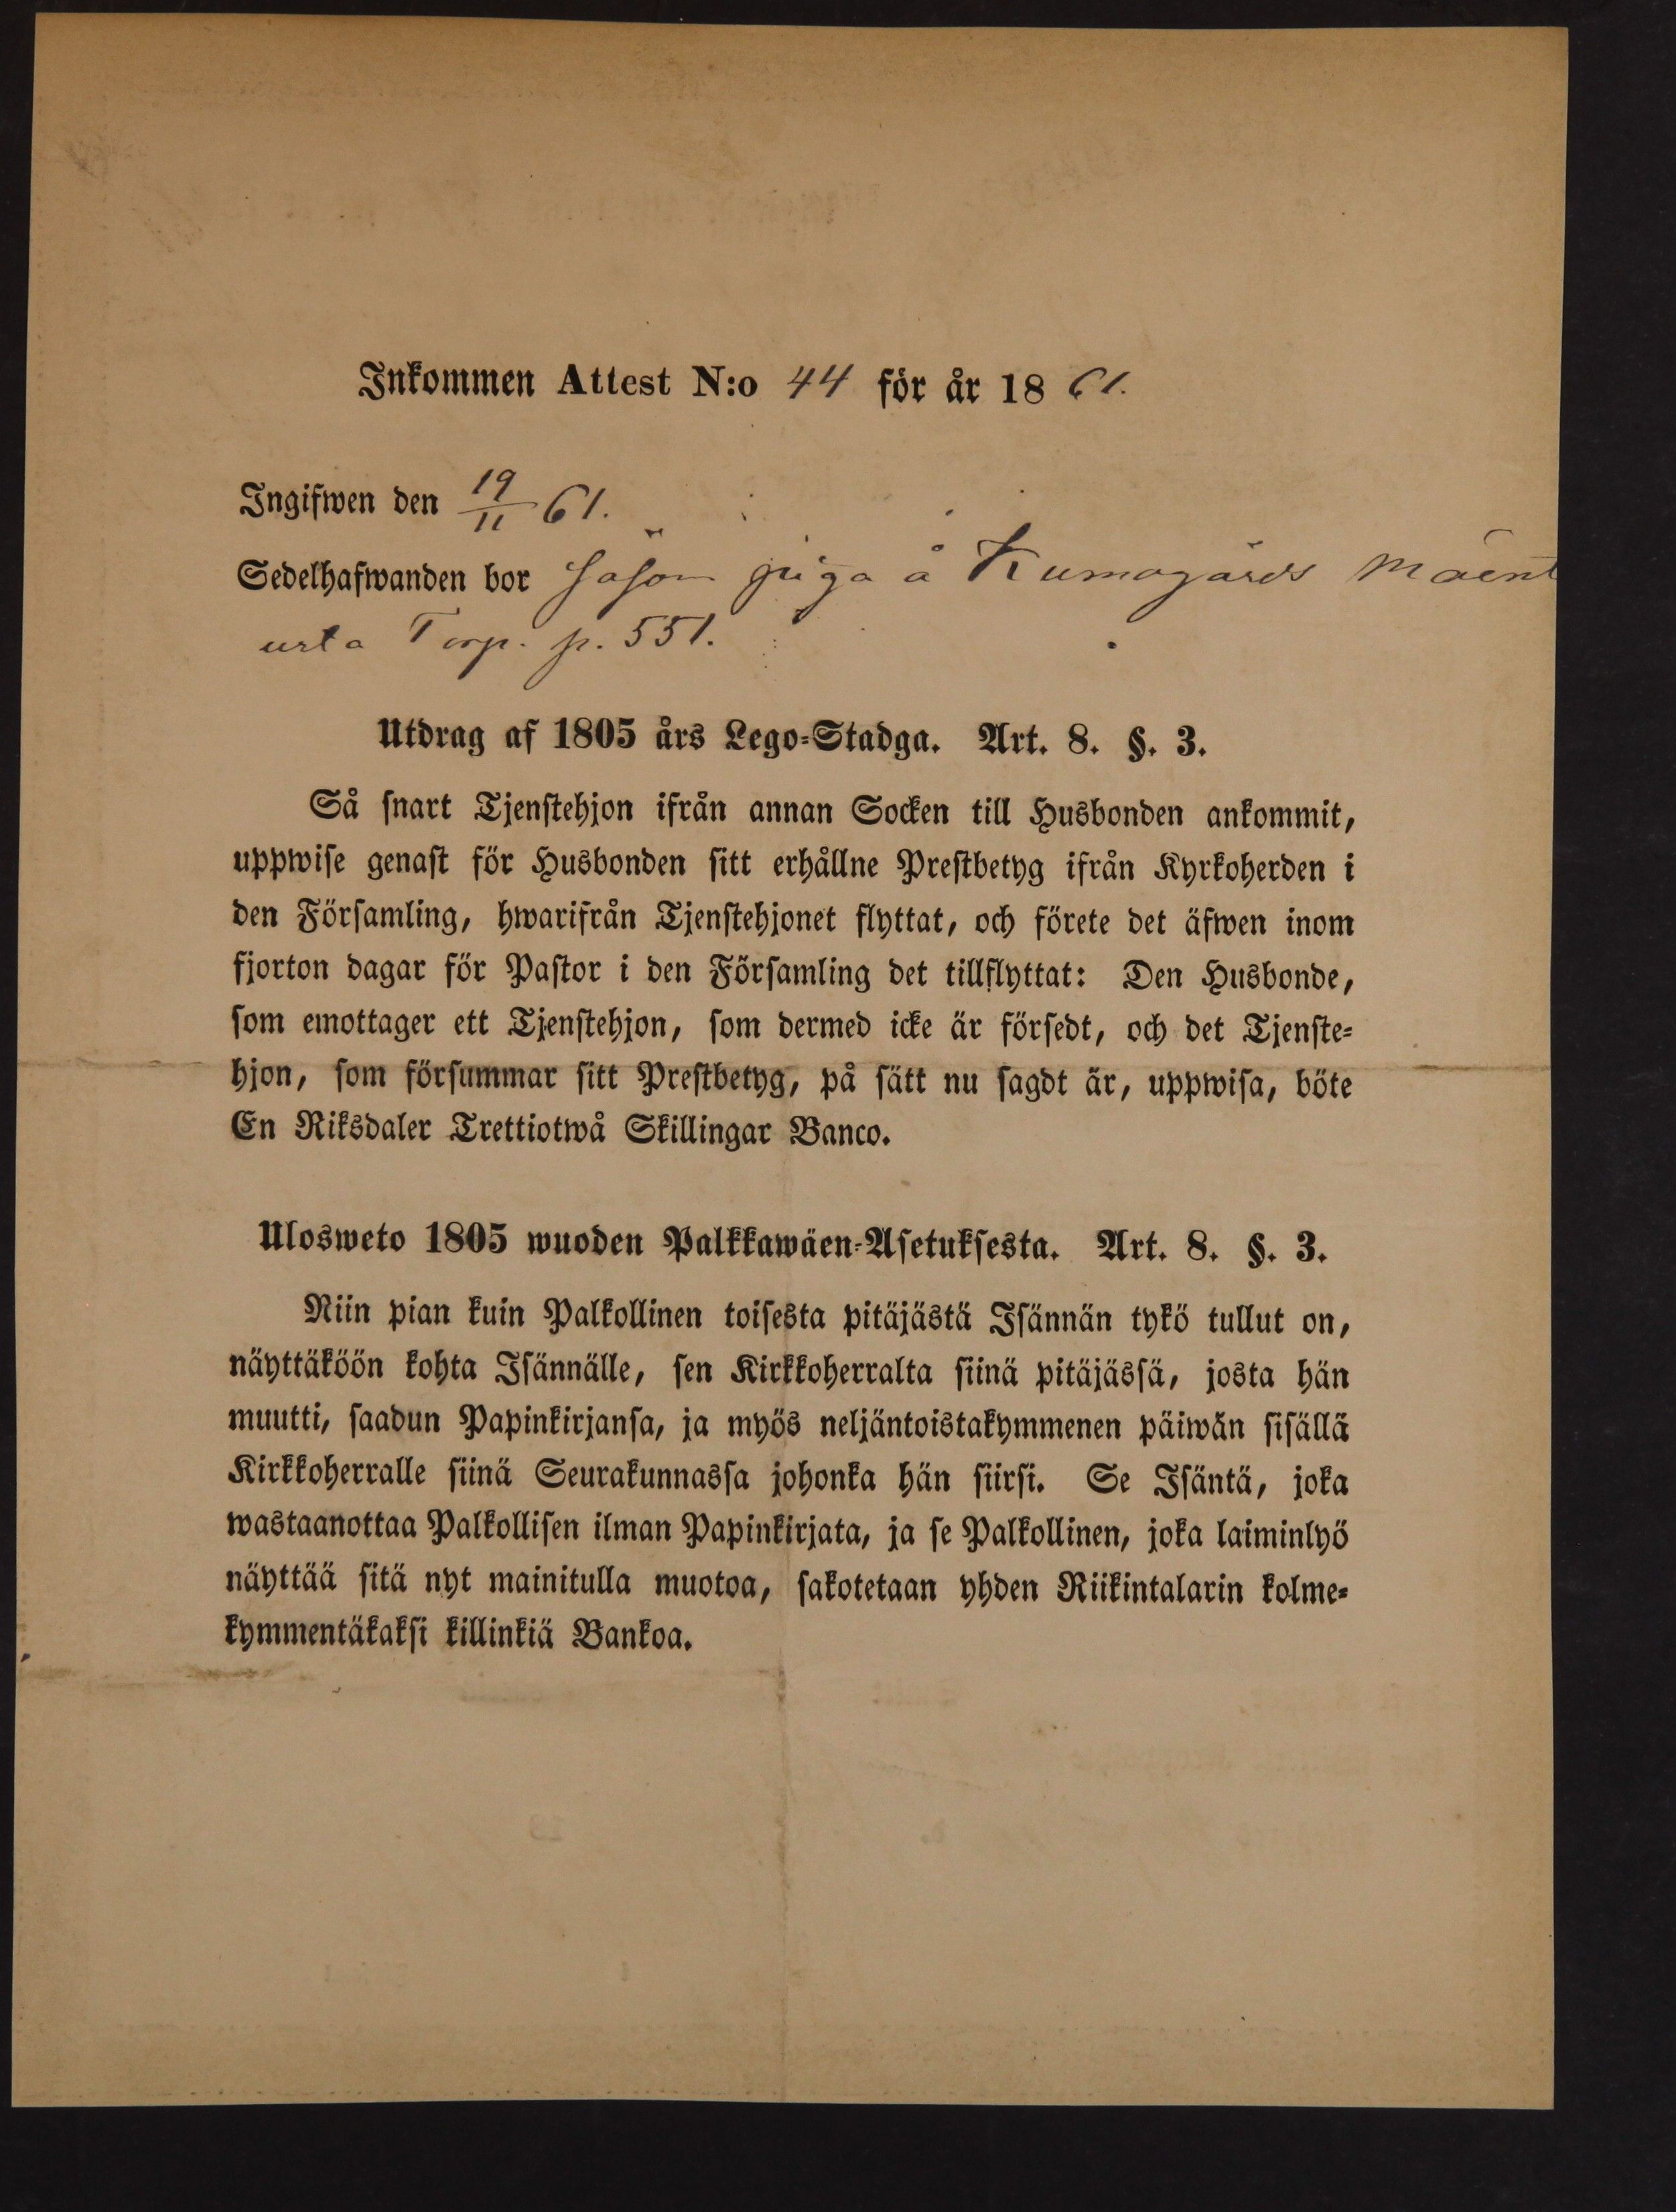 Inkommen Attest N:o 44 för år 1861.
Ingifwen den 19/11 61.
Sedelhafwanden bor såsom piga å Kumogårds Mäent
usta Torp. p. 551.
Utdrag af 1805 års Lego-Stadga. Art. 8. §. 3.
Så snart Tjenstehjon ifrån annan Socken till Husbonden ankommit,
uppwise genast för Husbonden sitt erhållne Prestbetyg ifrån Kyrkoherden i
den Församling, hwarifrån Tjenstehjonet flyttat, och förete det äfwen inom
fjorton dagar för Pastor i den Församling det tillflyttat: Den Husbonde,
som emottager ett Tjenstehjon, som dermed icke är försedt, och det Tjenste-
hjon, som försummar sitt Prestbetyg, på sätt nu sagdt är, uppwisa, böte
En Riksdaler Trettiotwå Skillingar Banco.
Ulosweto 1805 wuoden Palkkawäen-Asetuksesta. Art. 8. §. 3.
Niin pian kuin Palkollinen toisesta pitäjästä Isännän tykö tullut on,
näyttäköön kohta Isännälle, sen Kirkkoherralta siinä pitäjässä, josta hän
muutti, saadun Papinkirjansa, ja myös neljäntoistakymmenen päiwän sisällä
Kirkkoherralle siinä Seurakunnassa johonka hän siirsi. Se Isäntä, joka
wastaanottaa Palkollisen ilman Papinkirjata, ja se Palkollinen, joka laiminlyö
näyttää sitä nyt mainitulla muotoa, sakotetaan yhden Riikintalarin kolme-
kymmentäkaksi killinkiä Bankoa.